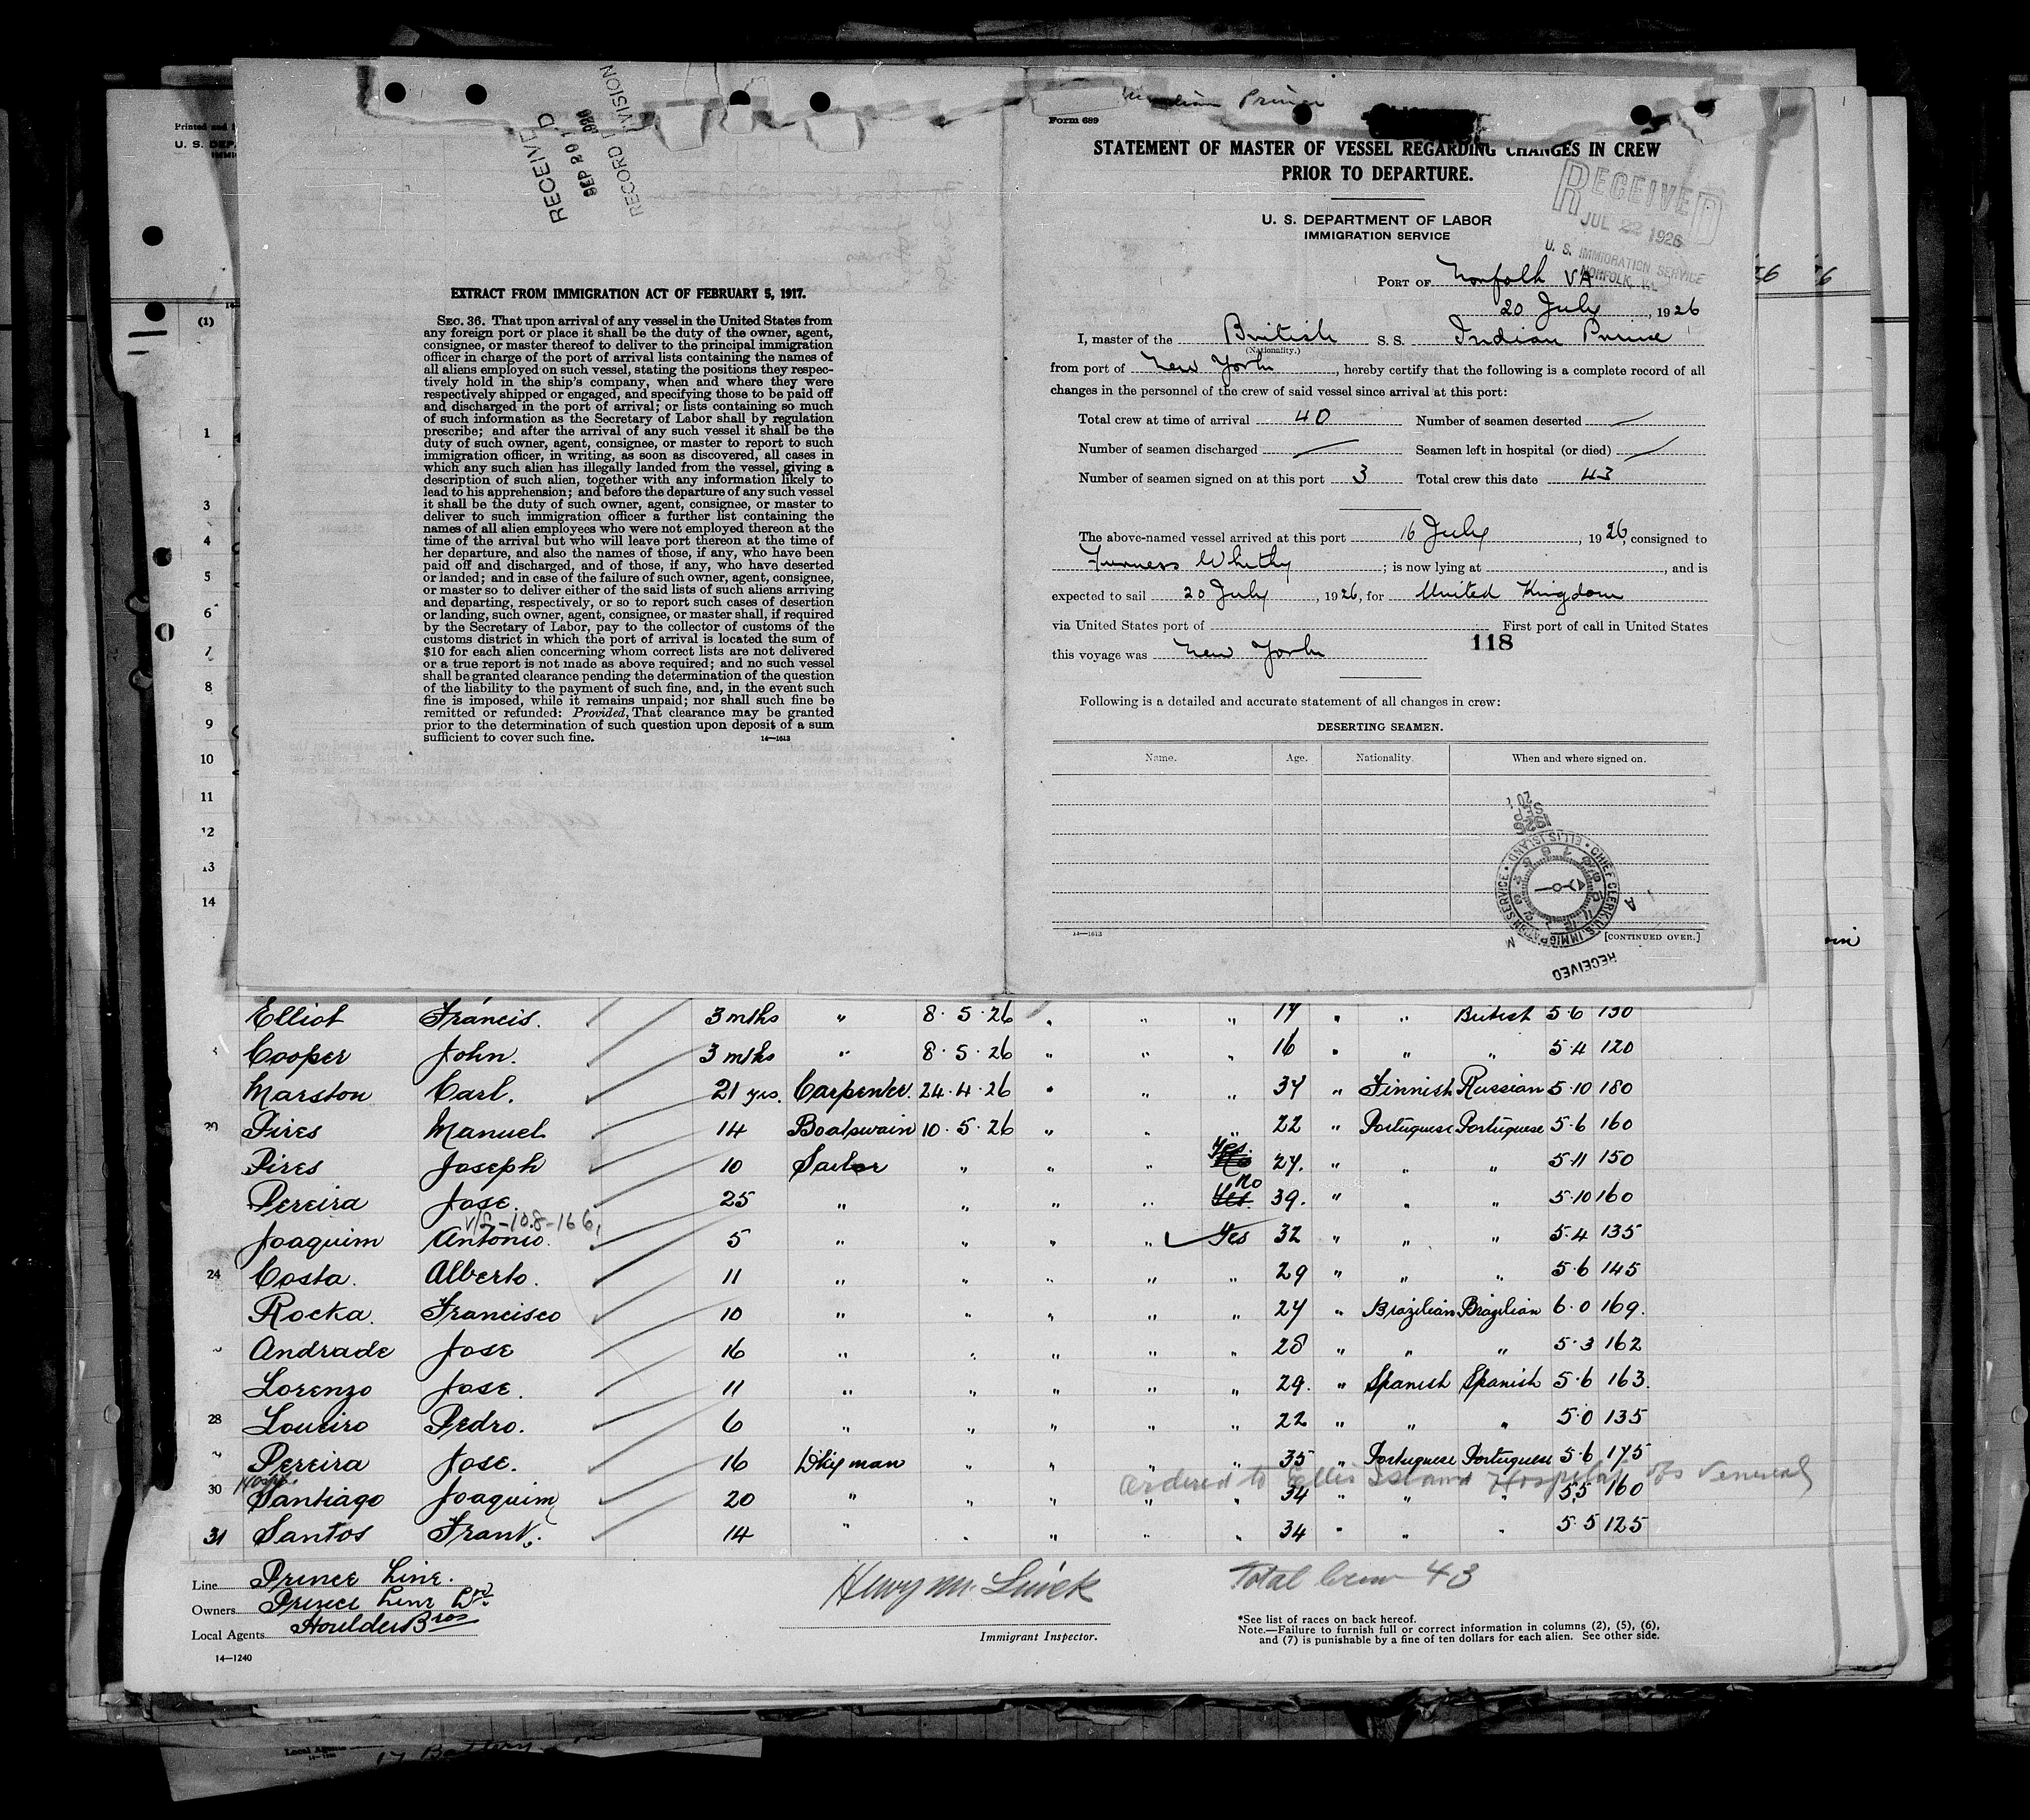 Printed and
U. S. DEP
IMMI
(1)
RECEIVED
SEP 20 1926
RECORD DIVISION
EXTRACT FROM IMMIGRATION ACT OF FEBRUARY 5, 1917.
SEC. 36. That upon arrival of any vessel in the United States from
any foreign port or place it shall be the duty of the owner, agent,
consignee, or master thereof to deliver to the principal immigration
officer in charge of the port of arrival lists containing the names of
all aliens employed on such vessel, stating the positions they respec-
tively hold in the ship's company, when and where they were
respectively shipped or engaged, and specifying those to be paid off
and discharged in the port of arrival; or lists containing so much
of such information as the Secretary of Labor shall by regulation
prescribe; and after the arrival of any such vessel it shall be the
duty of such owner, agent, consignee, or master to report to such
immigration officer, in writing, as soon as discovered, all cases in
which any such alien has illegally landed from the vessel, giving a
description of such alien, together with any information likely to
lead to his apprehension; and before the departure of any such vessel
it shall be the duty of such owner, agent, consignee, or master to
deliver to such immigration officer a further list containing the
names of all alien employees who were not employed thereon at the
time of the arrival but who will leave port thereon at the time of
her departure, and also the names of those, if any, who have been
paid off and discharged, and of those, if any, who have deserted
or landed; and in case of the failure of such owner, agent, consignee,
or master so to deliver either of the said lists of such aliens arriving
and departing, respectively, or so to report such cases of desertion
or landing, such owner, agent, consignee, or master shall, if required
by the Secretary of Labor, pay to the collector of customs of the
customs district in which the port of arrival is located the sum of
$10 for each alien concerning whom correct lists are not delivered
or a true report is not made as above required; and no such vessel
shall be granted clearance pending the determination of the question
of the liability to the payment of such fine, and, in the event such
fine is imposed, while it remains unpaid; nor shall such fine be
remitted or refunded: Provided, That clearance may be granted
prior to the determination of such question upon deposit of a sum
sufficient to cover such fine.
14—1613
1
3
4
5
6
7
8
9
10
11
12
13
14
Indian Prince
Form 689
STATEMENT OF MASTER OF VESSEL REGARDING CHANGES IN CREW
PRIOR TO DEPARTURE.
U. S. DEPARTMENT OF LABOR
IMMIGRATION SERVICE
RECEIVED
JUL 22 1926
U. S. IMMIGRATION SERVICE
NORFOLK, VA.
PORT OF Norfolk VA
20 July, 1926
I, master of the British S. S. Indian Prince
(Nationality.)
from port of New York, hereby certify that the following is a complete record of all
changes in the personnel of the crew of said vessel since arrival at this port:
Total crew at time of arrival 40 Number of seamen deserted —
Number of seamen discharged — Seamen left in hospital (or died) —
Number of seamen signed on at this port 3 Total crew this date 43
The above-named vessel arrived at this port 16 July, 1926, consigned to
Furness Whithy; is now lying at , and is
expected to sail 20 July, 1926, for United Kingdom
via United States port of First port of call in United States
this voyage was New York 118
Following is a detailed and accurate statement of all changes in crew:
DESERTING SEAMEN.
Name. Age. Nationality. When and where signed on.
1926 SEP 20
CHIEF CLERK U.S. IMMIGRATION SERVICE • ELLIS ISLAND •
RECEIVED
14—1613
[CONTINUED OVER.]
Elliot Francis. 3 mths " 8.5.26 " " " 17 " " British 5.6 130
Cooper John. 3 mths " 8.5.26 " " " 16 " " " 5.4 120
Marston Carl. 21 yrs. Carpenter. 24.4.26 " " " 37 " Finnish Russian 5.10 180
20 Pires Manuel 14 Boatswain 10.5.26 " " " 22 " Portuguese Portuguese 5.6 160
Pires Joseph 10 Sailor " " " Yes 27. " " " 5.11 150
Pereira Jose. 25 " " " " No Yes 39. " " " 5.10 160
Joaquim Antonio. 5 " " " " Yes 32 " " " 5.4 135
24 Costa. Alberto. 11 " " " " " 29 " " " 5.6 145
Rocka. Francisco 10 " " " " " 27 " Brazilian Brazilian 6.0 169.
Andrade Jose 16 " " " " " 28 " " " 5.3 162
Lorenzo Jose. 11 " " " " " 29. " Spanish Spanish 5.6 163.
28 Loueiro Pedro. 6 " " " " " 22 " " " 5.0 135
Pereira Jose. 16 Dkyman " " " " 35 " Portuguese Portuguese 5.6 175
Ordered to Ellis Island Hospital Obs Venereal
Hosp.
30 Santiago Joaquim 20 " " " " " 34 " " " 5.5 160
31 Santos Frank. 14 " " " " " 34 " " " 5.5 125
Line Prince Line.
Owners Prince Line Ltd.
Local Agents Houlder Bros
14—1240
Immigrant Inspector.
Total Crew 43
*See list of races on back hereof.
Note.—Failure to furnish full or correct information in columns (2), (5), (6),
and (7) is punishable by a fine of ten dollars for each alien. See other side.
Local Agents
17 Battery